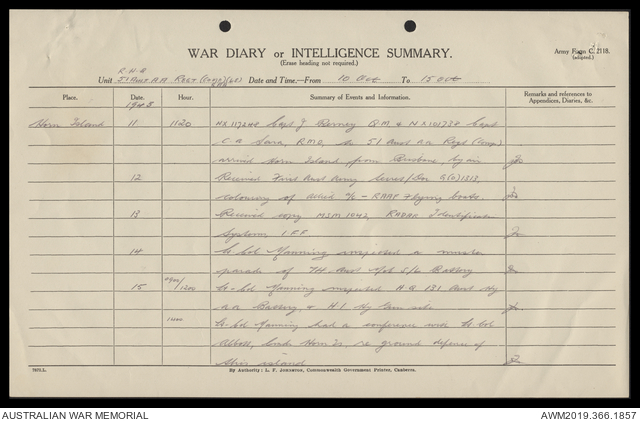 WAR DIARY or INTELLIGENCE SUMMARY.
(Erase heading not required.)
Army Form C. 2118.
(adapted.)
R.H.Q
Unit 51 Aust A.A. Regt (Comp) Date and Time,—From 10 Oct To 15 Oct
Place. Date. Hour. Summary of Events and Information. Remarks and references to Appendices, Diaries, &c.
1943
Horn Island 11 1120 NX 117248 Capt J Berney Q.M. & NX 101782 Capt
C A Sara, R.M.O. to 51 Aust AA Regt (Comp)
arrived Horn Island, from Brisbane, by air
12 Received First Aust Army G(O)1313,
colouring of Allied a/c - RAAF Flying boats.
13 Received copy MSM 1042 RADAR Identification
Systems I.F.F.
14 Lt-Col Manning inspected a muster
parade of 74 Aust S/L Battery
15 0900/1200 Lt-Col Manning inspected H Q 131 Aust Hy
AA Battery, & H1 Hy Gun site
1400 Lt-Col Manning had a conference with Lt-Col
Abbott, Comd Horn Is, re ground defence of
this island
7872L. By Authority: L. F. Johnston, Commonwealth Government Printer, Canberra.
AUSTRALIAN WAR MEMORIAL AWM2019.366.1857